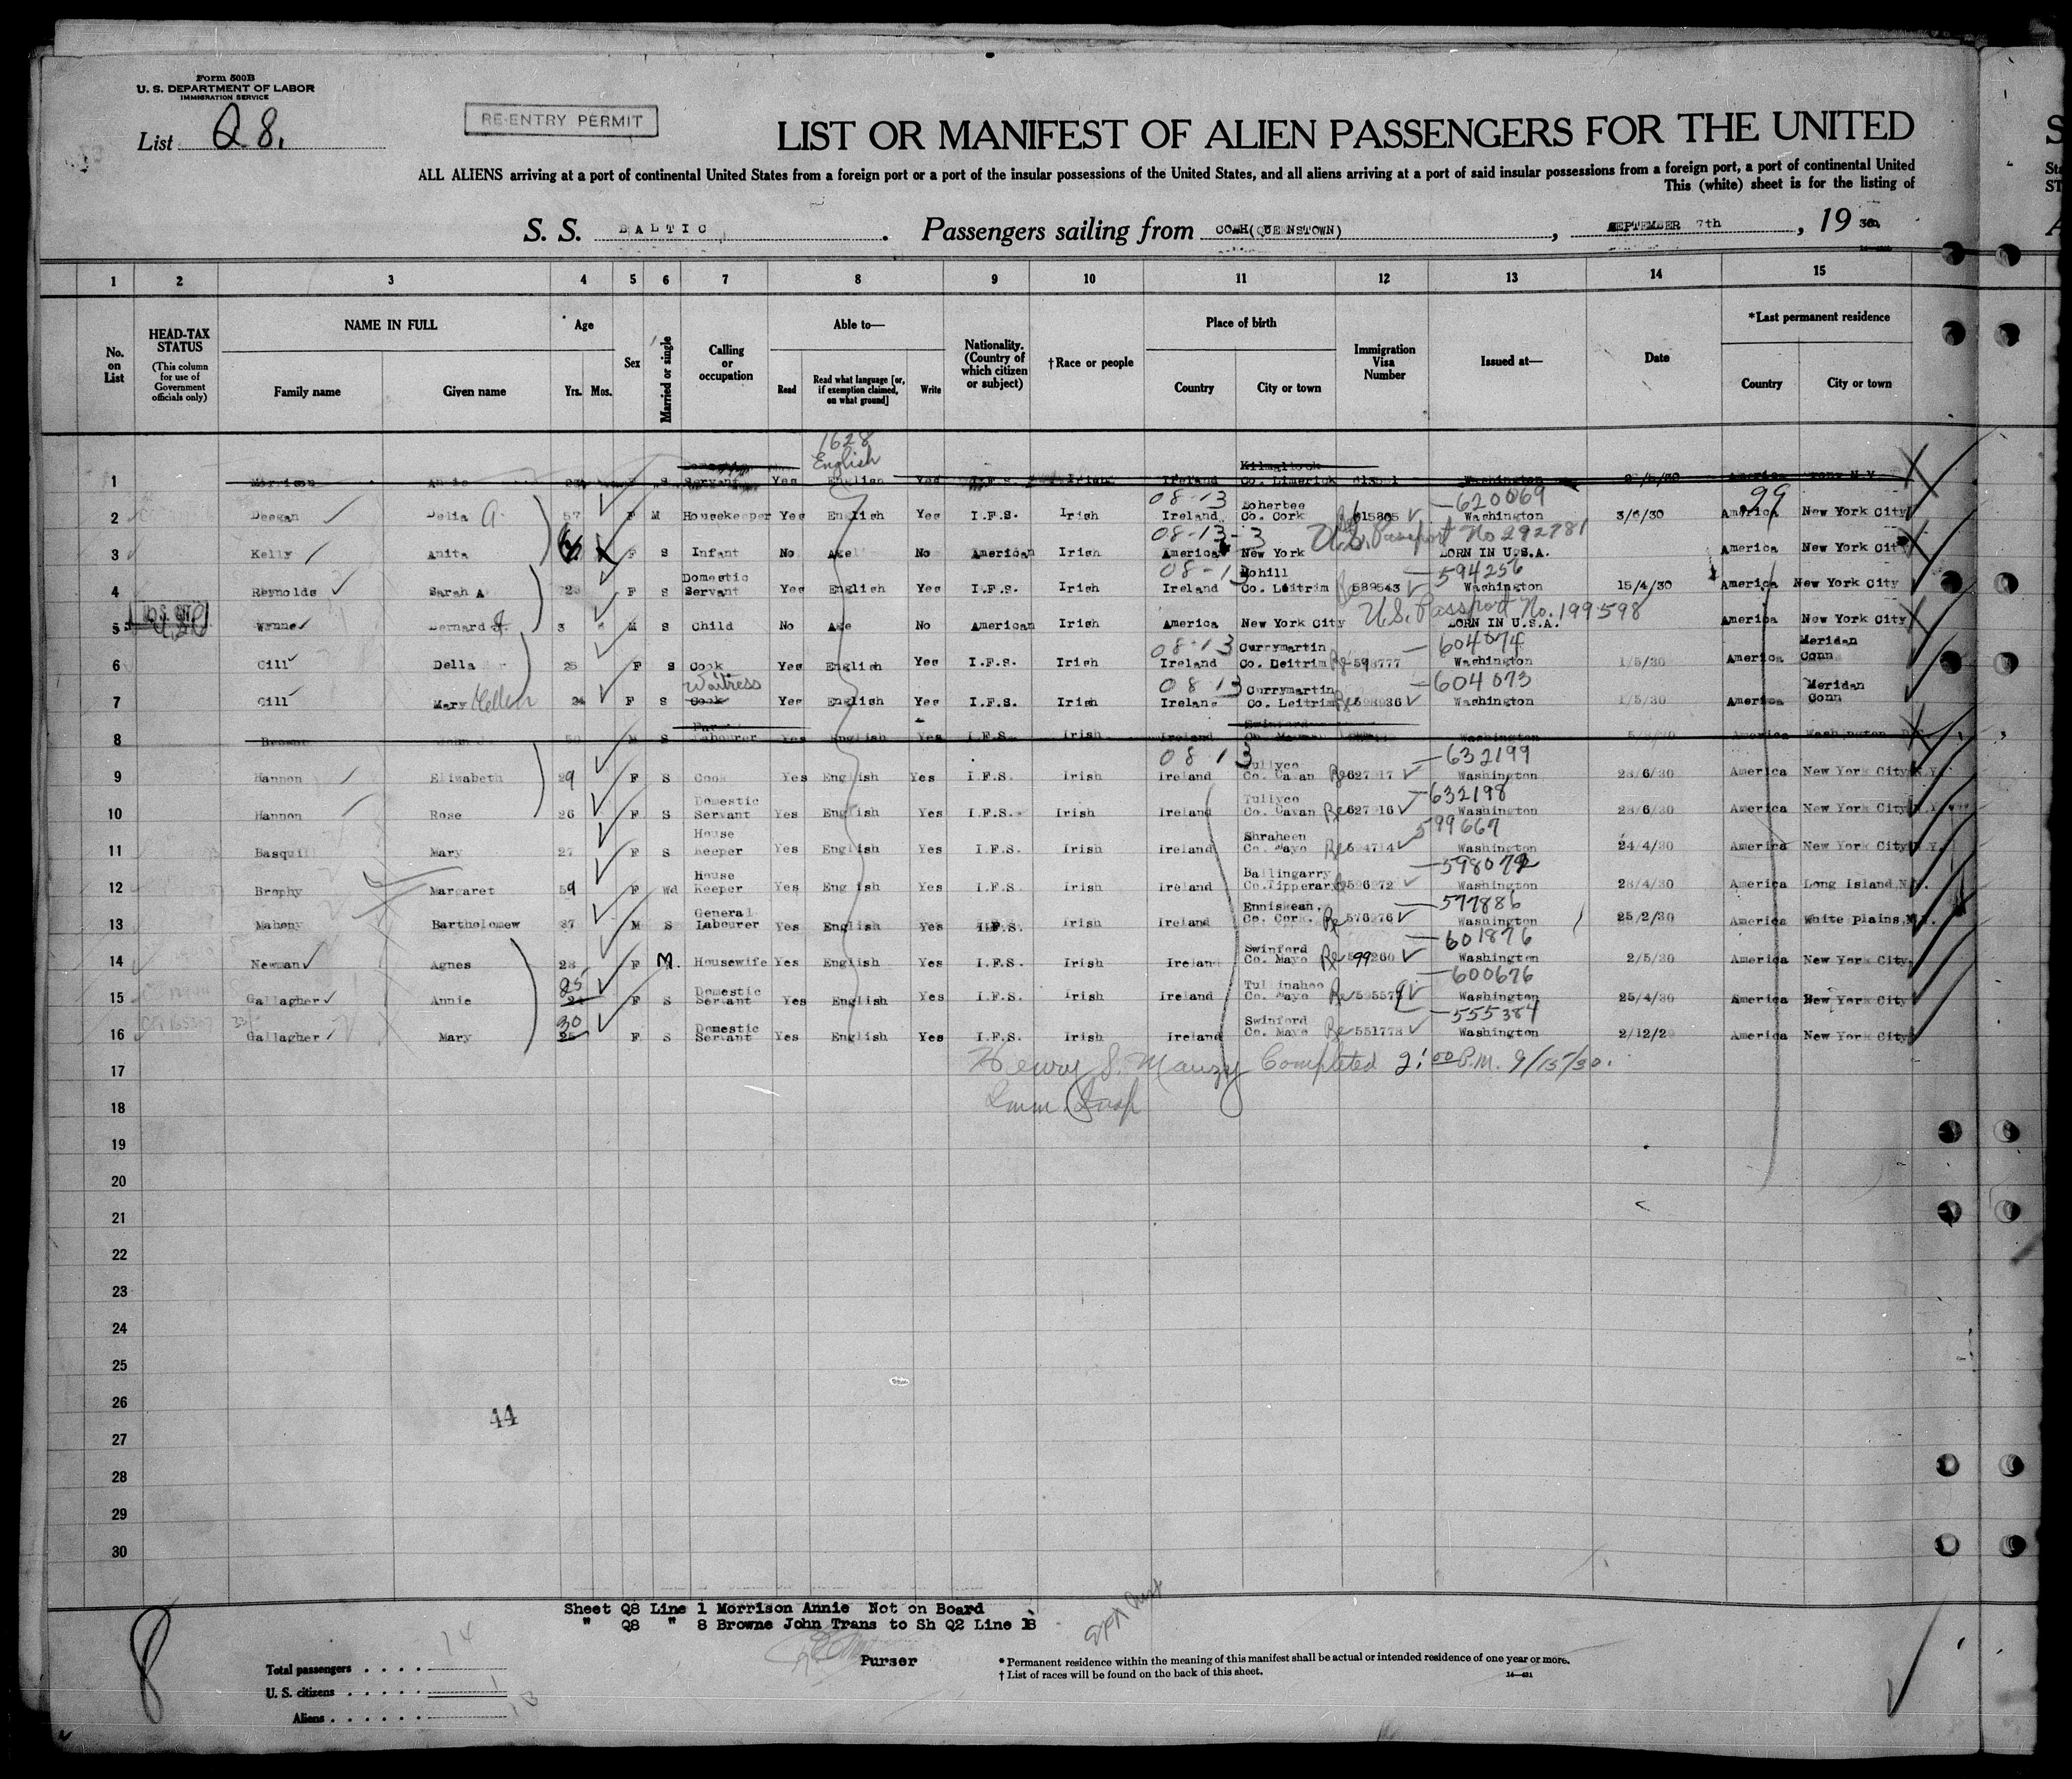 Form 500B
U. S. DEPARTMENT OF LABOR
IMMIGRATION SERVICE
List Q 8.
RE-ENTRY PERMIT
LIST OR MANIFEST OF ALIEN PASSENGERS FOR THE UNITED
ALL ALIENS arriving at a port of continental United States from a foreign port or a port of the insular possessions of the United States, and all aliens arriving at a port of said insular possessions from a foreign port, a port of continental United
This (white) sheet is for the listing of
S. S. BALTIC . Passengers sailing from COBH(QUEENSTOWN) , SEPTEMBER 7th , 19 30
1 2 3 4 5 6 7 8 9 10 11 12 13 14 15
No. on List
HEAD-TAX STATUS
(This column for use of Government officials only)
NAME IN FULL
Family name Given name
Age
Yrs. Mos.
Sex
Married or single
Calling or occupation
Able to—
Read Read what language [or, if exemption claimed, on what ground] Write
Nationality. (Country of which citizen or subject)
†Race or people
Place of birth
Country City or town
Immigration Visa Number
Issued at—
Date
*Last permanent residence
Country City or town
1628
English
1 Morrison Annie S Servant Yes English Yes I.F.S. Irish Ireland Kilmallock Co. Limerick Washington America
2 Deegan Delia A. 57 F M Housekeeper Yes English Yes I.F.S. Irish 08-13 Ireland Co. Cork 615805 620069 Washington 3/6/30 99 America New York City
3 Kelly Anita F S Infant No Age No American Irish 08-13-3 America New York U.S. Passport No 292781 BORN IN U.S.A. America New York City
4 Reynolds Sarah A 28 F S Domestic Servant Yes English Yes I.F.S. Irish 08-13 Ireland Mohill Co. Leitrim 589543 594256 Washington 15/4/30 America New York City
5 Wynne Bernard J. 3 M S Child No Age No American Irish America New York City U.S. Passport No. 199598 BORN IN U.S.A. America New York City
6 Gill Della 25 F S Cook Yes English Yes I.F.S. Irish 08-13 Ireland Currymartin Co. Leitrim Re 598777 604074 Washington 1/5/30 America Meriden Conn
7 Gill Mary Ellen 24 F S Waitress Cook Yes English Yes I.F.S. Irish 08 13 Ireland Currymartin Co. Leitrim 604073 Washington 1/5/30 America Meridan Conn
8 Browne John M S Labourer Yes English Yes I.F.S. Irish Ireland Swinford Co. Mayo Washington America Washington
9 Hannon Elizabeth 29 F S Cook Yes English Yes I.F.S. Irish 08 13 Ireland Tullyco Co. Cavan Re 627917 632199 Washington 28/6/30 America New York City N.Y.
10 Hannon Rose 26 F S Domestic Servant Yes English Yes I.F.S. Irish Ireland Tullyco Co. Cavan Re 627916 632198 Washington 28/6/30 America New York City N.Y.
11 Basquil Mary 27 F S House Keeper Yes English Yes I.F.S. Irish Ireland Shraheen Co. Mayo Re 594714 599667 Washington 24/4/30 America New York City N.Y.
12 Brophy Margaret 59 F Wd House Keeper Yes English Yes I.F.S. Irish Ireland Ballingarry Co. Tipperary 596272 598072 Washington 28/4/30 America Long Island N.Y.
13 Mahony Bartholomew 37 M S General Labourer Yes English Yes I.F.S. Irish Ireland Enniskean, Co. Cork. Re 576276 577886 Washington 25/2/30 America White Plains, N.Y.
14 Newman Agnes 28 F M. Housewife Yes English Yes I.F.S. Irish Ireland Swinford Co. Mayo Re 599260 601876 Washington 2/5/30 America New York City
15 Gallagher Annie 25 F S Domestic Servant Yes English Yes I.F.S. Irish Ireland Tullinahoo Co. Mayo Re 595579 600676 Washington 25/4/30 America New York City
16 Gallagher Mary 30 F S Domestic Servant Yes English Yes I.F.S. Irish Ireland Swinford Co. Mayo Re 551778 555384 Washington 2/12/29 America New York City
17 Henry S. Mauzy Completed 2:00 P.M. 9/15/30.
18 Imm. Insp
19
20
21
22
23
24
25
26
27
28
29
30
44
Sheet Q8 Line 1 Morrison Annie Not on Board
" Q8 " 8 Browne John Trans to Sh Q2 Line 18
Purser
8
Total passengers . . . . 14
U. S. citizens . . . . . 1
Aliens . . . . . . 13
* Permanent residence within the meaning of this manifest shall be actual or intended residence of one year or more.
† List of races will be found on the back of this sheet.